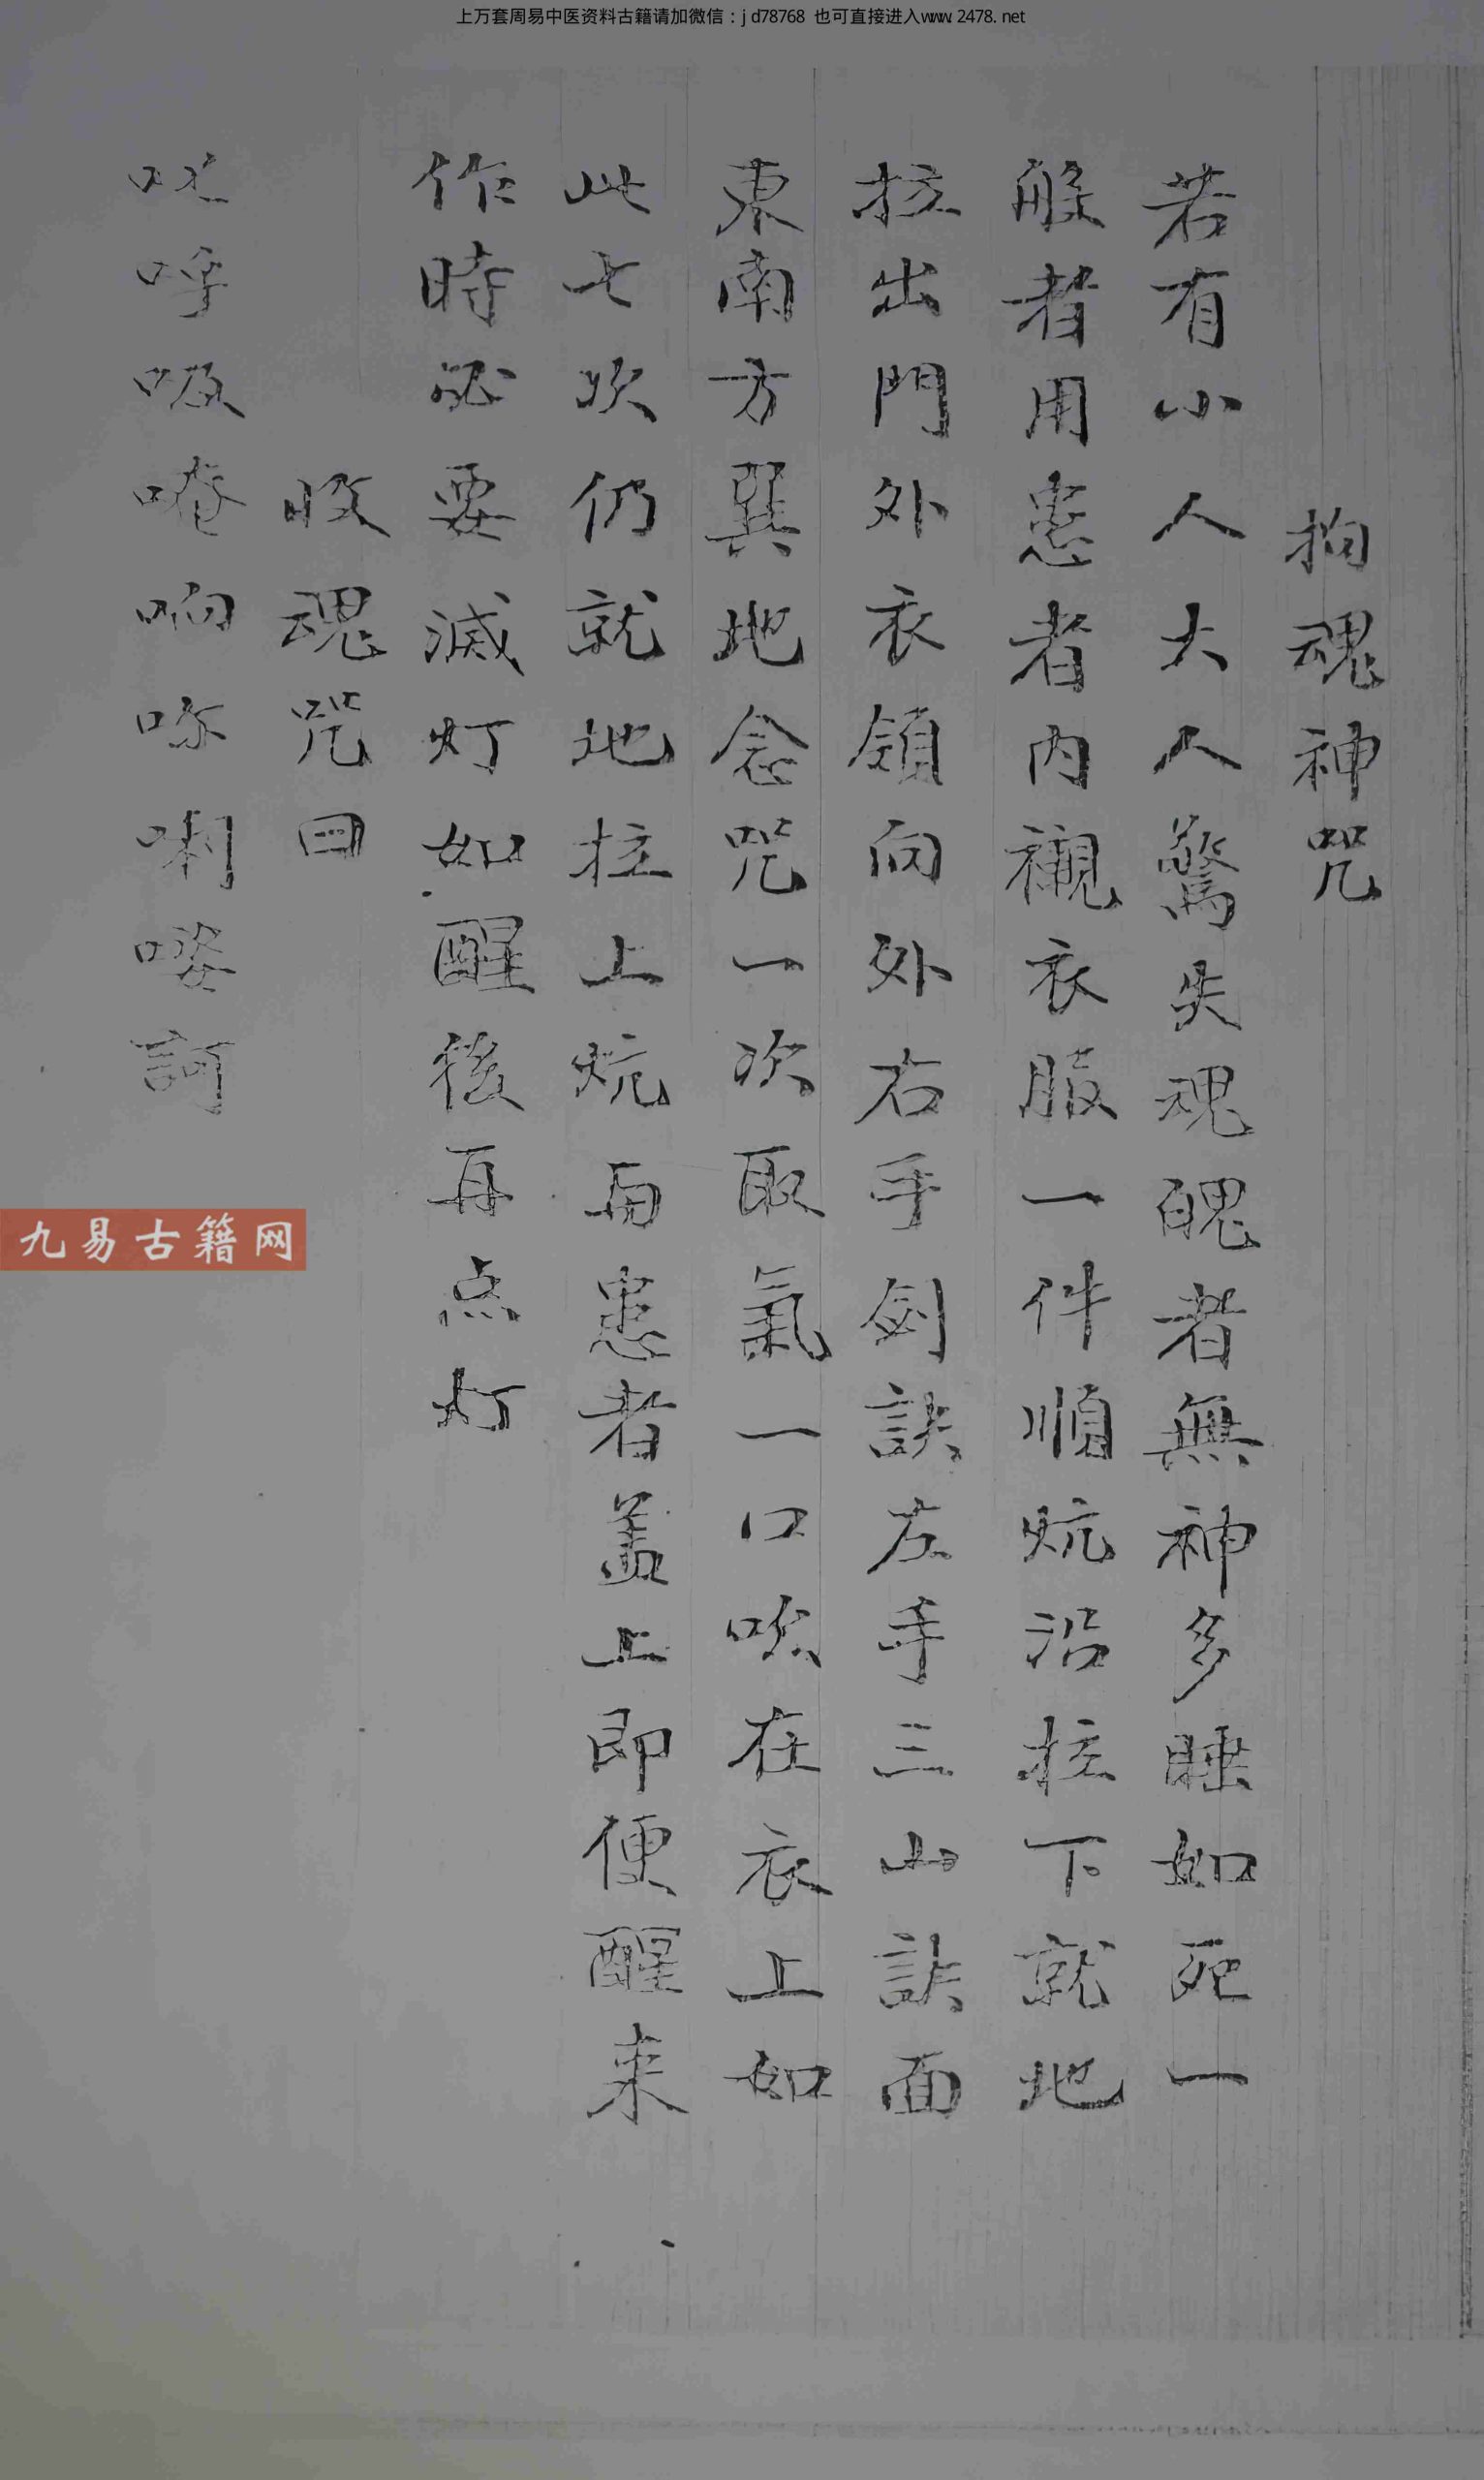 上万套周易中医资料古籍请加微信：jd78768 也可直接进入www.2478.net
拘魂神咒
若有小人大人驚失魂魄者無神多睡如死一
般者用患者内襯衣服一件順炕沿拉下就地
拉出門外衣領向外右手劍訣左手三山訣面
東南方巽地念咒一次取氣一口吹在衣上如
此七次仍就地拉上炕與患者盖上即便醒来
作時必要滅灯如醒後再点灯
收魂咒曰
呼吸唵响哪唎娑訶
九易古籍网